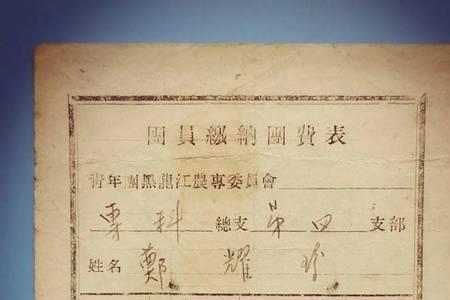 團員繳納團費表
青年團黑龍江農專委員會
專科總支第四支部
姓名 鄭耀珍